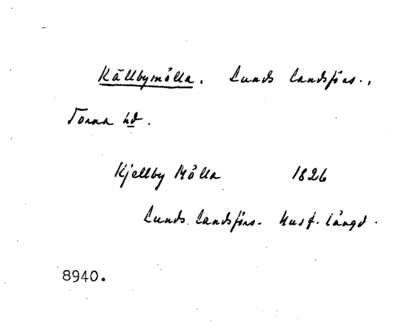 Källbymölla. Lunds landsförs.,
Torna hd.
Kjellby Mölla 1826
Lunds landsförs. Husf. längd.
8940.